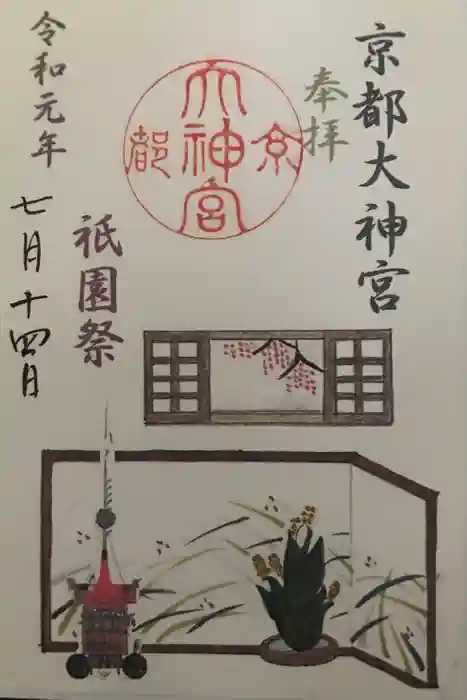 京都大神宮
奉拝
京
大神宮
都
祇園祭
令和元年
七月十四日